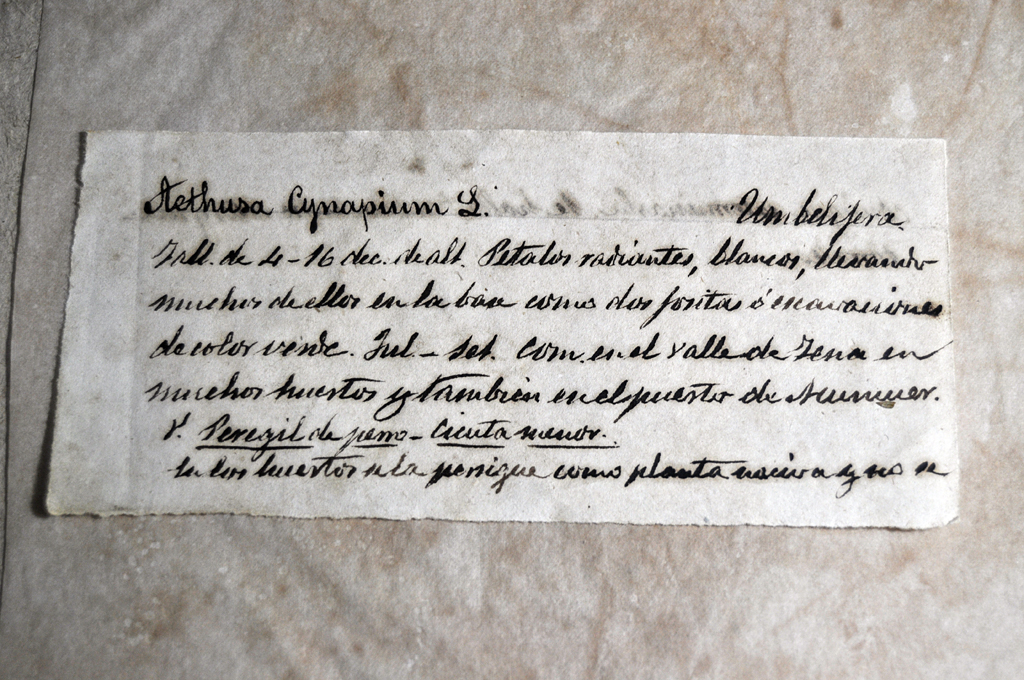 Aethusa Cynapium L. Umbelifera.
Tall. de 4-16 dec. de alt. Petalos radiantes, blancos, llevando
muchos de ellos en la base como dos fositas ó excavaciones
de color verde. Jul. - Set. Com. en el valle de Tena en
muchos huertos y tambien en el puerto de
V. Peregil de perro - Cicuta menor.
En los huertos se la persigue como planta nociva y no se